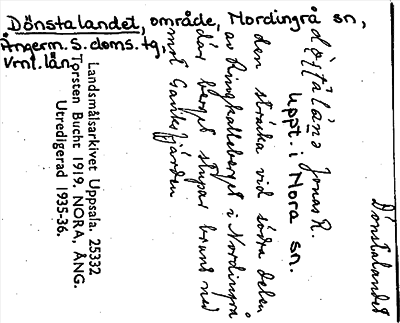 Dönstalandet, område, Nordingrå sn,
Ångerm. S. doms. tg,
Vrnl. län
Dönstalandet
Jonas R.
uppt. i Nora sn.
den sträcka vid södra delen
av Ringkalleberget i Nordingrå
där berget stupar brant ned
mot Gaviksfjärden
Landsmålsarkivet Uppsala. 25332
Torsten Bucht 1919. NORA, ÅNG.
Utredigerad 1935-36.